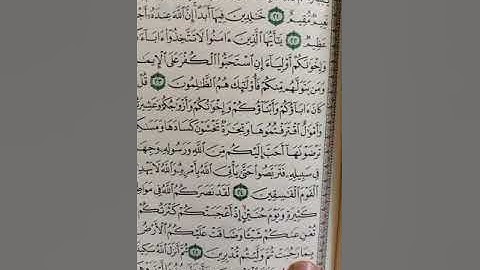 نَعِيمٌ مُّقِيمٌ ٢١ خَٰلِدِينَ فِيهَآ أَبَدًا إِنَّ ٱللَّهَ عِندَهُۥٓ أَجۡ
عَظِيمٌ ٢٢ يَٰٓأَيُّهَا ٱلَّذِينَ ءَامَنُواْ لَا تَتَّخِذُوٓاْ ءَابَآءَ
وَإِخۡوَٰنَكُمۡ أَوۡلِيَآءَ إِنِ ٱسۡتَحَبُّواْ ٱلۡكُفۡرَ عَلَى ٱلۡإِيمَ
وَمَن يَتَوَلَّهُم مِّنكُمۡ فَأُوْلَٰٓئِكَ هُمُ ٱلظَّٰلِمُونَ ٢٣ قُلۡ
كَانَ ءَابَآؤُكُمۡ وَأَبۡنَآؤُكُمۡ وَإِخۡوَٰنُكُمۡ وَأَزۡوَٰجُكُمۡ وَعَشِيرَ
وَأَمۡوَٰلٌ ٱقۡتَرَفۡتُمُوهَا وَتِجَٰرَةٌ تَخۡشَوۡنَ كَسَادَهَا وَمَسَٰكِ
تَرۡضَوۡنَهَآ أَحَبَّ إِلَيۡكُم مِّنَ ٱللَّهِ وَرَسُولِهِۦ وَجِهَ
فِي سَبِيلِهِۦ فَتَرَبَّصُواْ حَتَّىٰ يَأۡتِيَ ٱللَّهُ بِأَمۡرِهِۦ وَٱللَّهُ لَا يَهۡدِ
ٱلۡقَوۡمَ ٱلۡفَٰسِقِينَ ٢٤ لَقَدۡ نَصَرَكُمُ ٱللَّهُ فِي مَوَاطِ
كَثِيرَةٍ وَيَوۡمَ حُنَيۡنٍ إِذۡ أَعۡجَبَتۡكُمۡ كَثۡرَتُكُمۡ
تُغۡنِ عَنكُمۡ شَيۡـًٔا وَضَاقَتۡ عَلَيۡكُمُ ٱلۡأَرۡضُ
بِمَا رَحُبَتۡ ثُمَّ وَلَّيۡتُم مُّدۡبِرِينَ ٢٥ ثُمَّ أَنزَلَ ٱللَّهُ سَكِ